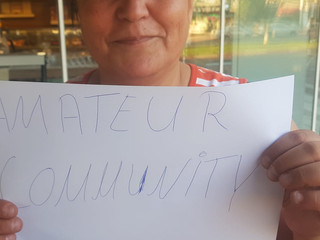 AMATEUR
COMMUNITY